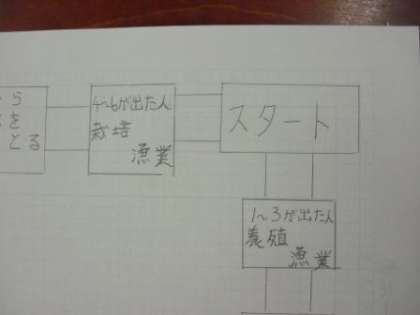 ら
を
とる
4~6が出た人
栽培
漁業
スタート
1~3が出た人
養殖
漁業